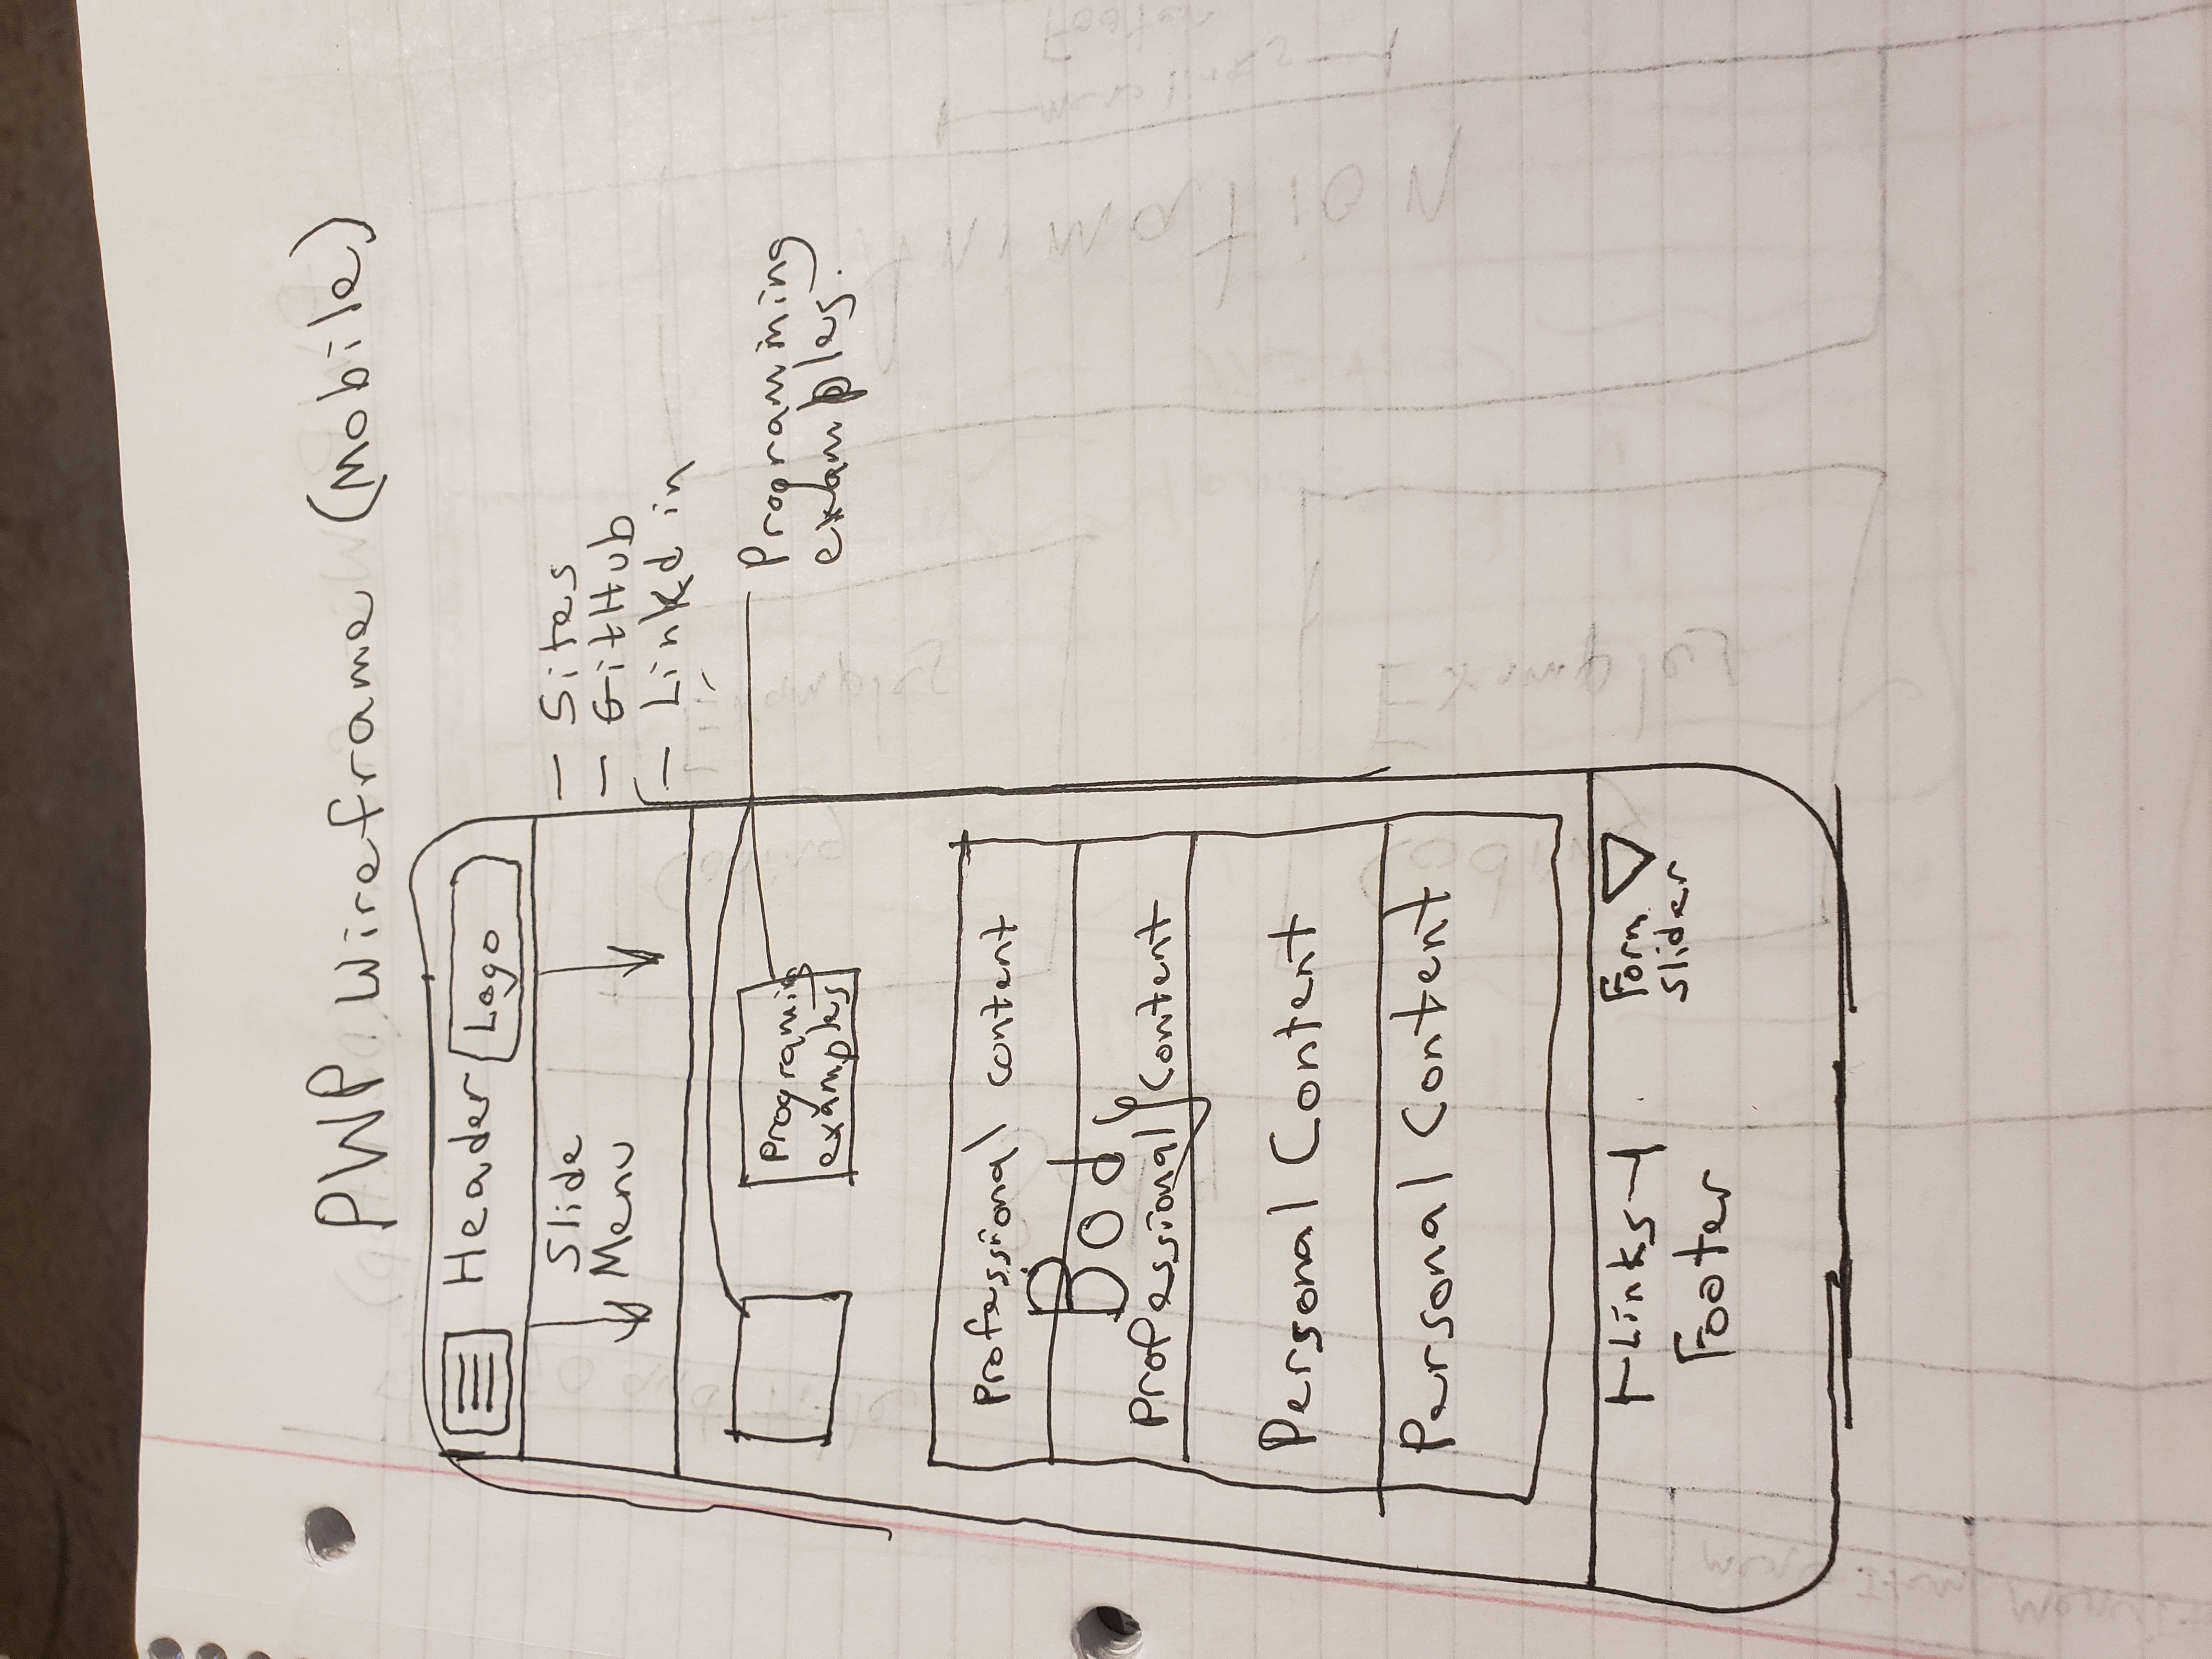 PWP Wireframe (Mobile)
Header
Logo
Slide
Menu
- Sites
- GitHub
- Linkd in
Programing
examples
Programming
examples.
Professional content
Body
Professional Content
Personal Content
Personal Content
Links
Footer
Form
slider